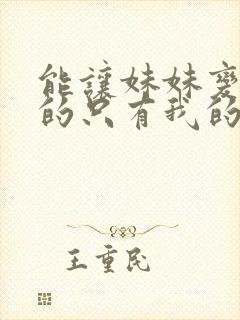 能讓妹妹變
的只有我的
王重民